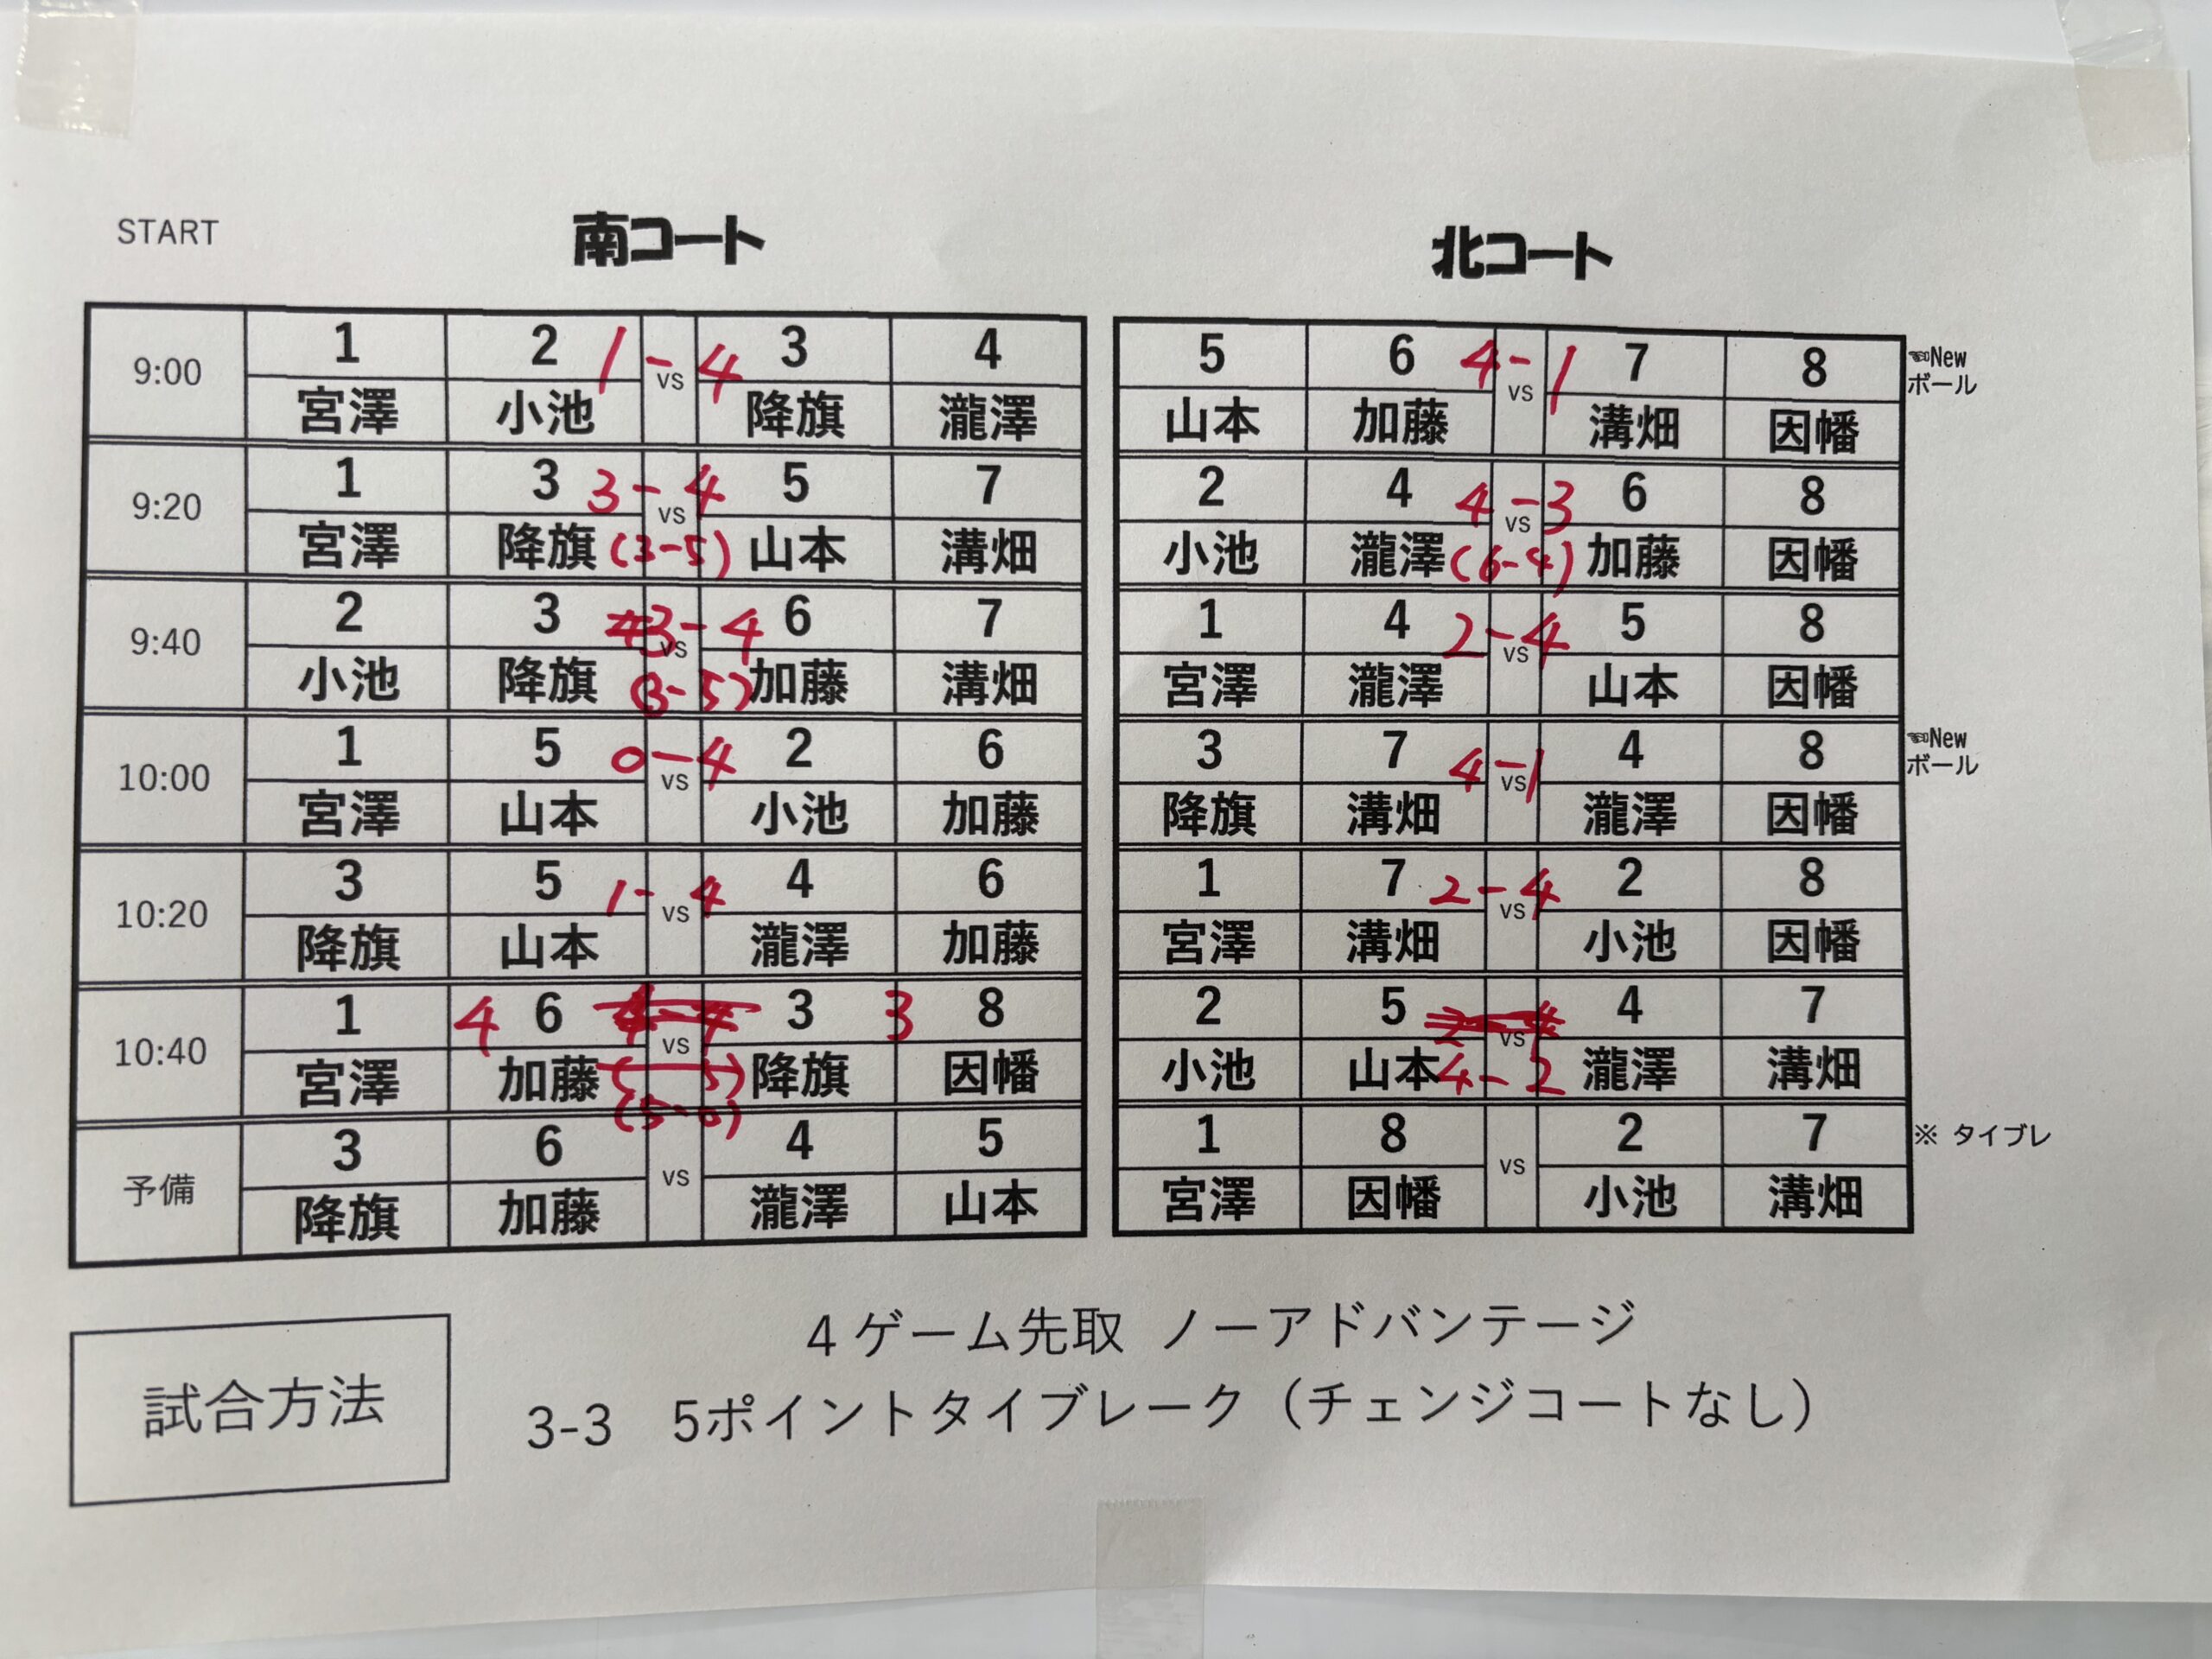 START 南コート 北コート
9:00 1 2 1-4 vs 3 4 5 6 4-1 vs 7 8 ☜New
宮澤 小池 降旗 瀧澤 山本 加藤 溝畑 因幡 ボール
9:20 1 3 3-4 vs 5 7 2 4 4-3 vs 6 8
宮澤 降旗 (3-5) 山本 溝畑 小池 瀧澤 (6-4) 加藤 因幡
9:40 2 3 3-4 vs 6 7 1 4 2-4 vs 5 8
小池 降旗 (3-5) 加藤 溝畑 宮澤 瀧澤 山本 因幡
10:00 1 5 0-4 vs 2 6 3 7 4-1 vs 4 8 ☜New
宮澤 山本 小池 加藤 降旗 溝畑 瀧澤 因幡 ボール
10:20 3 5 1-4 vs 4 6 1 7 2-4 vs 2 8
降旗 山本 瀧澤 加藤 宮澤 溝畑 小池 因幡
10:40 1 4 6 vs 3 3 8 2 5 vs 4 7
宮澤 加藤 降旗 因幡 小池 山本 4-2 瀧澤 溝畑
(5-0)
予備 3 6 vs 4 5 1 8 vs 2 7 ※ タイブレ
降旗 加藤 瀧澤 山本 宮澤 因幡 小池 溝畑
試合方法
4ゲーム先取 ノーアドバンテージ
3-3 5ポイントタイブレーク（チェンジコートなし）